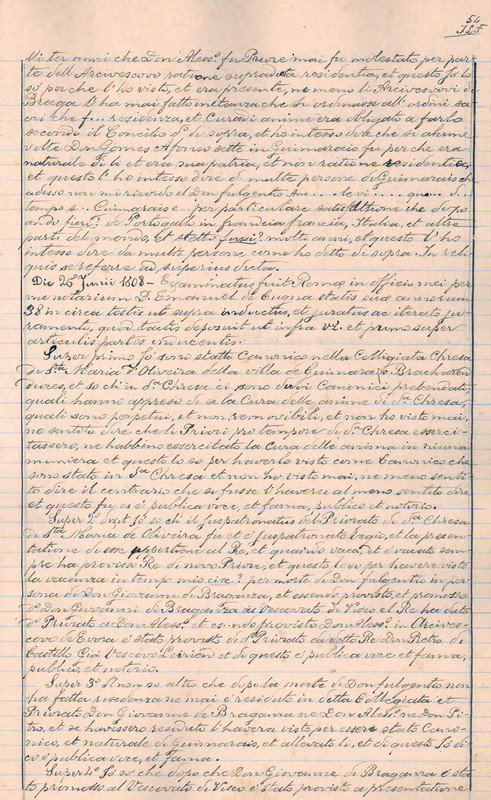 54
J.L.F.
li ter anni che Don Aless.º fu Priore mai fu molestato per par-
te dell Arcivescovo ratione supradicta residentia, et questo Jo lo
so perche l'ho visto, et era presente, ne meno li Arcivescovi di
Braga l'ha mai fatto instanza che si ordinasse all' ordini sa
cri che f... residenza, et Curavi anime era obligato a farlo
secondo il Concilio d.º di sopra, et ho inteso dire che si alcune
volte Don Gomes Afonso sette in Guimarais fu perche era
naturale di li et era sua patria, et non ratione residentiæ,
et questo l'ho intesso dire di multe persone di Guimarais che
adesso non mi ricordo et Don fulgentio
tempo Guimarais e per particulare satisfattione che dopo
ando fieri? de Portogallo in francia francia, Italia, et altre
parti del mondo, et stette fuissi? multo anni, et questo l'ho
intesso dire da multe persone come ho detto di sopra. In reli
quis se referre ad superius dicta.
Die 26 Junii 1608 - Examinatus fuit Romæ in officio mei per
me notarium D. Emanuel de Cugna etatis suæ annorum
38 in circa testis ut supra inductus, et juratus ac iterato ju-
ramento, quod tactis deposuit ut infra vz. et primo super
articulis partis inducentis.
Super primo Jo sono statto Canonico nella Collegiata Chresa
di Sta Maria d'Oliveira della villa de Guimarais Bracharen
sis, et so ch'in d.ª Chresa ci sono diversi Canonici prebendati,
quali hanno appreso de se la Cura delle anime di d.ª Chresa,
quali sono perpetui, et non removibili, et non ho visto mai,
ne sentito dire che li Priori pro tempore di d.ª Chresa esserci-
tassero, ne habbino essercitato la Cura delle anima in niuna
maniera et questo lo so per haverlo visto come Canonico che
sono stato in d.ª Chresa et non ho visto mai, ne meno senti-
to dire il contrario che si fusse l'haverei al meno sentito dire
et questo fu, et è publica voce, et fama, publico et notorio.
Super 2º Dixit Jo so chi il juspatronatus del Priorato di d.ª Chresa
di Sta Maria de Oliveira fu et è juspatronato regio, et la presen-
tatione di esse appertiene al Re, et quando vaca et è vacato sem-
pre ha proviso il Re di novo Priore, et questo lo so per havere visto
la vacanza in tempo mio cioe? per morte de Don fulgentio in per-
sona di Don Giovanni di Braganza, et essendo provisto, et promosso
d.º Don Giovanni di Braganza ad Vescovato di Viseo il Re ha dato
d.º Priorato a Don Aless.º et essendo provisto Don Aless.º in Arcives-
covo de Evora è stato provisto di d.º Priorato da detto Re Don Pietro de
Castillo Già Vescovo Leirien et di questo è publica voce et fama,
publico, et notorio.
Super 3º dixit non so altro che dopo la morte di Don fulgentio non
ha fatta residenza ne mai è residuto in detta Collegiata et
Priorato Don Giovanne di Braganza ne Don Aless.º ne Don Pi-
tro, et se havessero residuto l'havera visto per essere stato Cano-
nico, et naturale di Guimarais, et allevato li, et di questo Jo di-
co è publica voce, et fama.
Super 4º Jo so che dopo che Don Giovanne di Braganza è sta-
to promosso al Vescovato di Viseo è stato provisto a presentatione